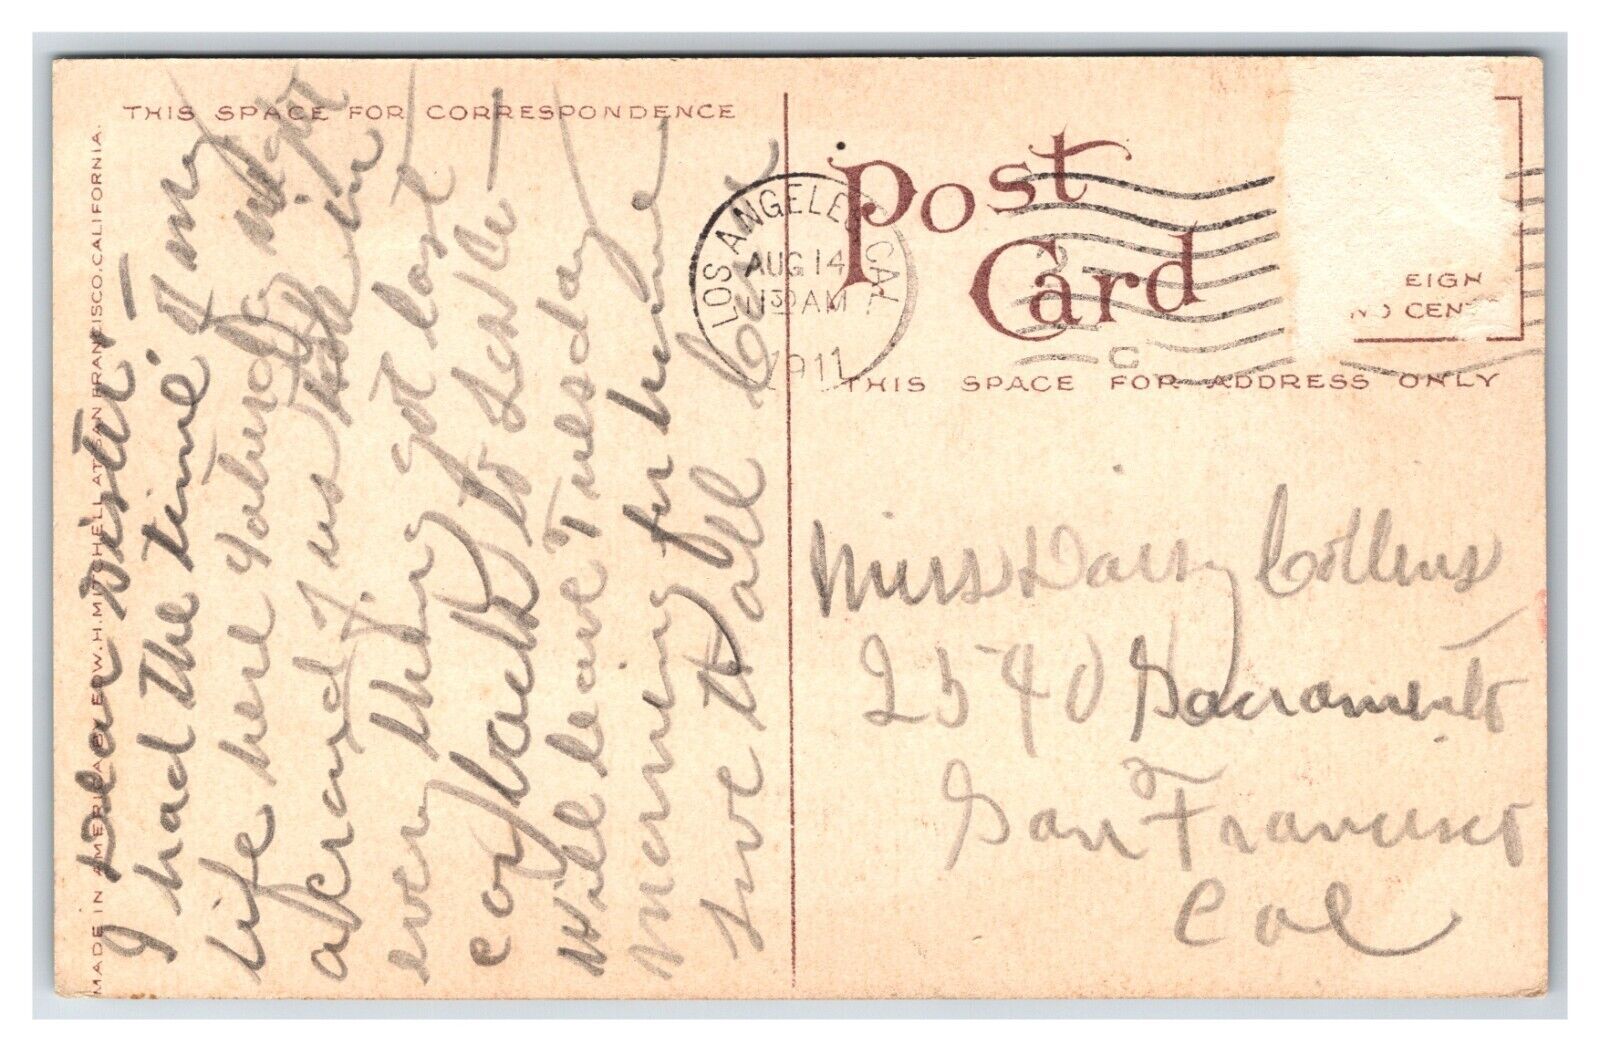 THIS SPACE FOR CORRESPONDENCE
MADE IN AMERICA BY EDW. H. MITCHELL AT SAN FRANCISCO, CALIFORNIA.
Dear Sister –
I had the time of my
life here Saturday night
a crowd of us
every thing got lost
will leave Tuesday
morning for home
Love to all
Post
Card
LOS ANGELES CAL.
AUG 14
1130 AM
1911
EIGN
CENT
THIS SPACE FOR ADDRESS ONLY
Miss Daisy Collins
2540 Sacramento
San Francisco
Cal